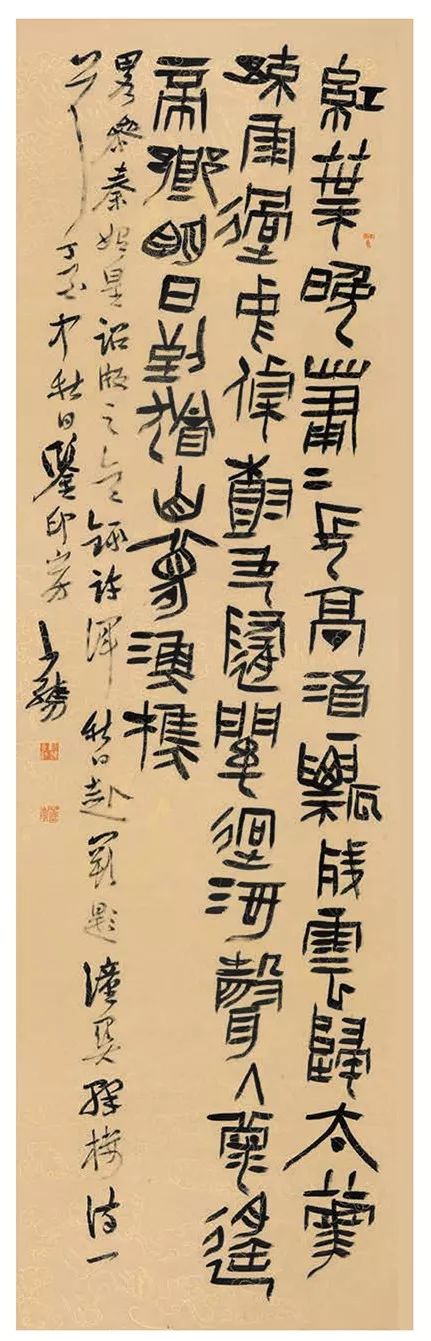 紅葉晚蕭二長亭酒一瓢殘雲歸太華
疎雨過中條樹色隨關迥河聲入海遙
帝鄉明日到猶自夢漁樵
畧參秦始皇詔版之意錄許渾秋日赴闕題潼關驛樓詩一
首丁秋日鑒印山房少孺